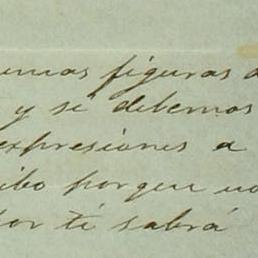 figuras
y si debemos
expresiones a
porque no
por ti sabrá